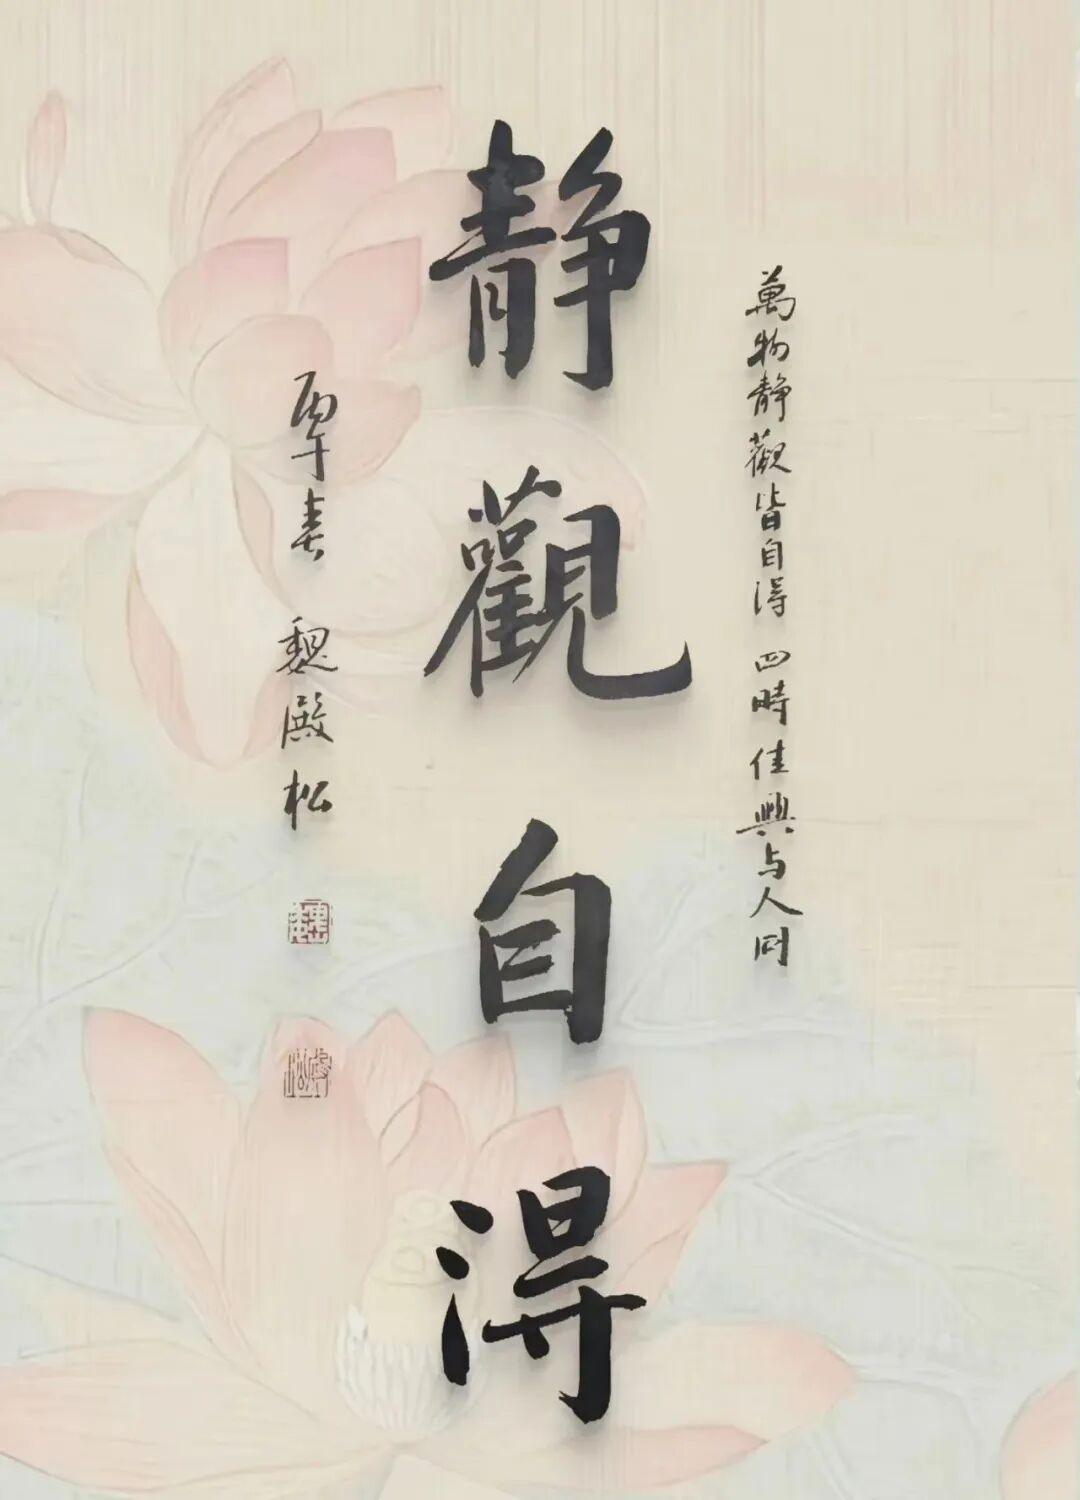 萬物静觀皆自得 四時佳興与人同
静觀自得
丙午春 魏殿松